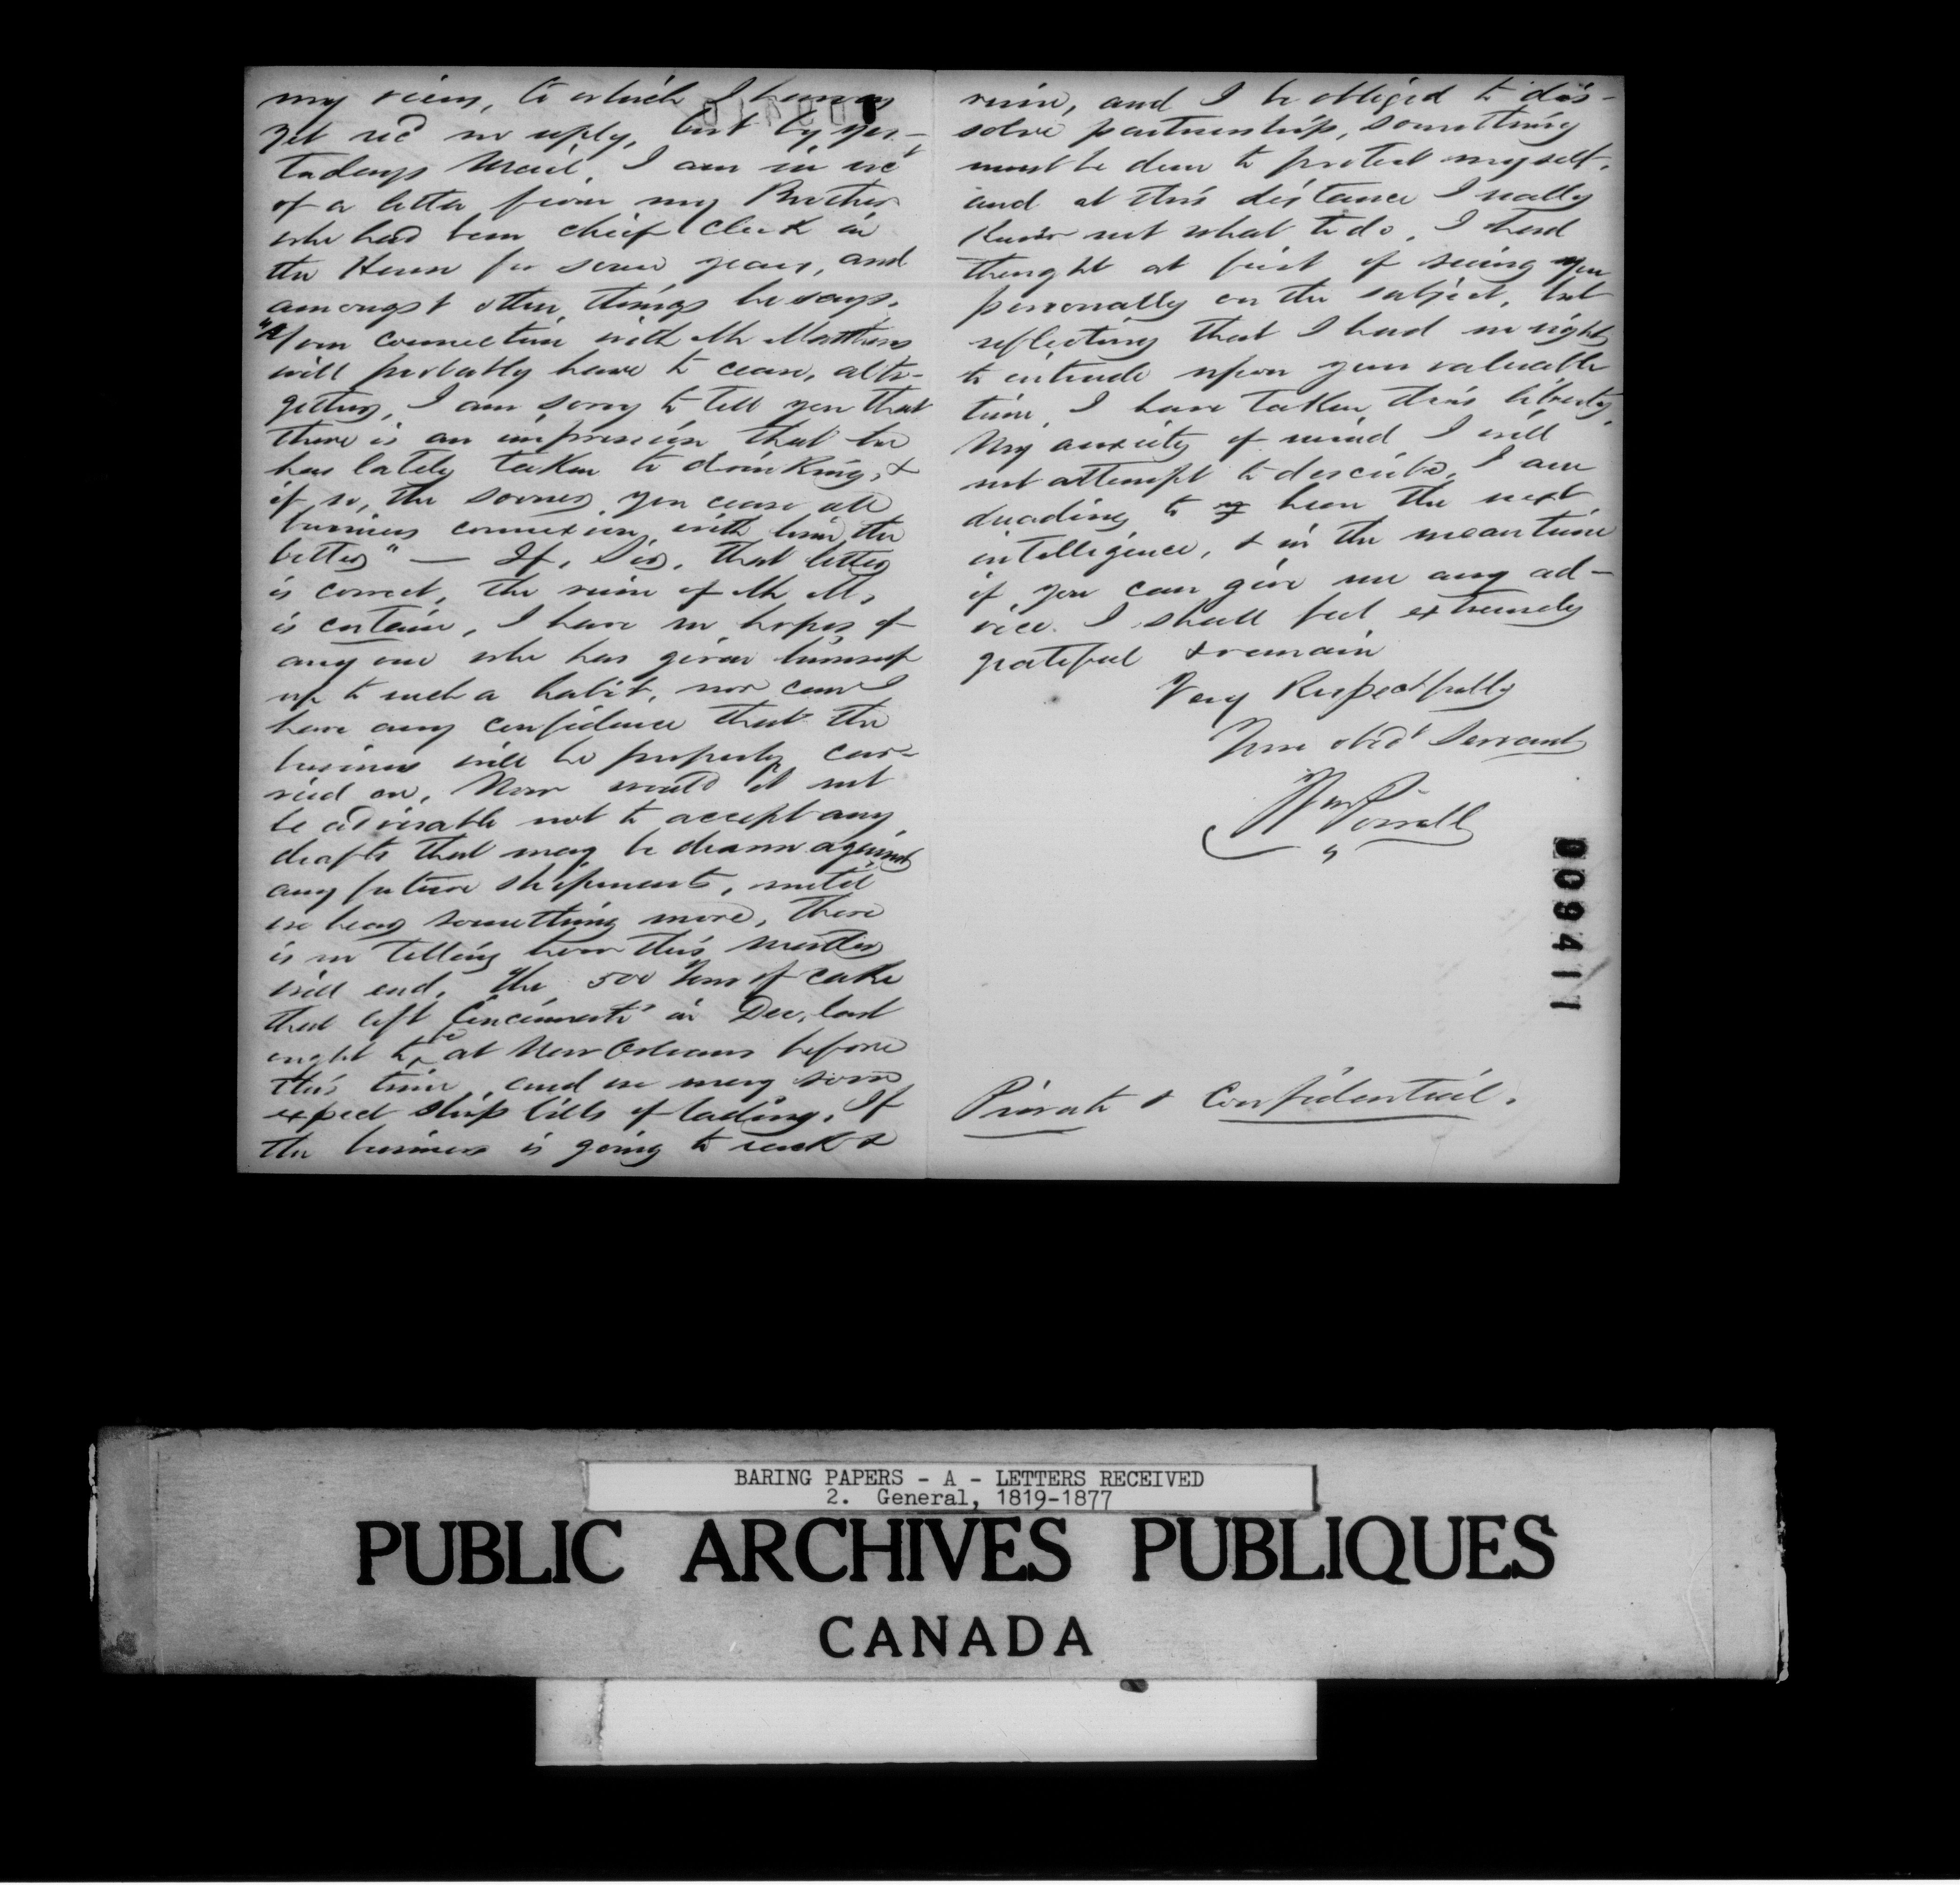 my views, to which I have as
yet recd no reply, but by yes-
terdays Mail, I am in rect
of a letter from my Brother
who had been chief Clerk in
the House for some years, and
amongst other things he says.
"Your connection with Mr Matthews
will probably have to cease, alto-
gether, I am sorry to tell you that
there is an impression that he
has lately taken to drinking, &
if so, the sooner you cease all
business connexion with him the
better" — If, Sir, that letter
is correct, the ruin of Mr M,
is certain, I have no hopes of
any one who has given himself
up to such a habit, nor can I
have any confidence that the
business will be properly car-
ried on, Now would it not
be advisable not to accept any
drafts that may be drawn against
any future shipments, until
we hear something more, there
is no telling how this matter
will end. The 500 Tons of cake
that left Cincinnati in Dec. last
ought to be at New Orleans before
this time, and we may soon
expect ship bills of lading. If
the business is going to wreck &
ruin, and I be obliged to dis-
solve partnership, something
must be done to protect myself,
and at this distance I really
know not what to do. I had
thought at first of seeing you
personally on the subject, but
reflecting that I had no right
to intrude upon your valuable
time, I have taken this liberty.
My anxiety of mind I will
not attempt to describe, I am
dreading to hear the next
intelligence, & in the meantime
if you can give me any ad-
vice I shall feel extremely
grateful & remain
Very Respectfully
Your obedt Servant
Wm
Private & Confidential.
009411
BARING PAPERS - A - LETTERS RECEIVED
2. General, 1819-1877
PUBLIC ARCHIVES PUBLIQUES
CANADA